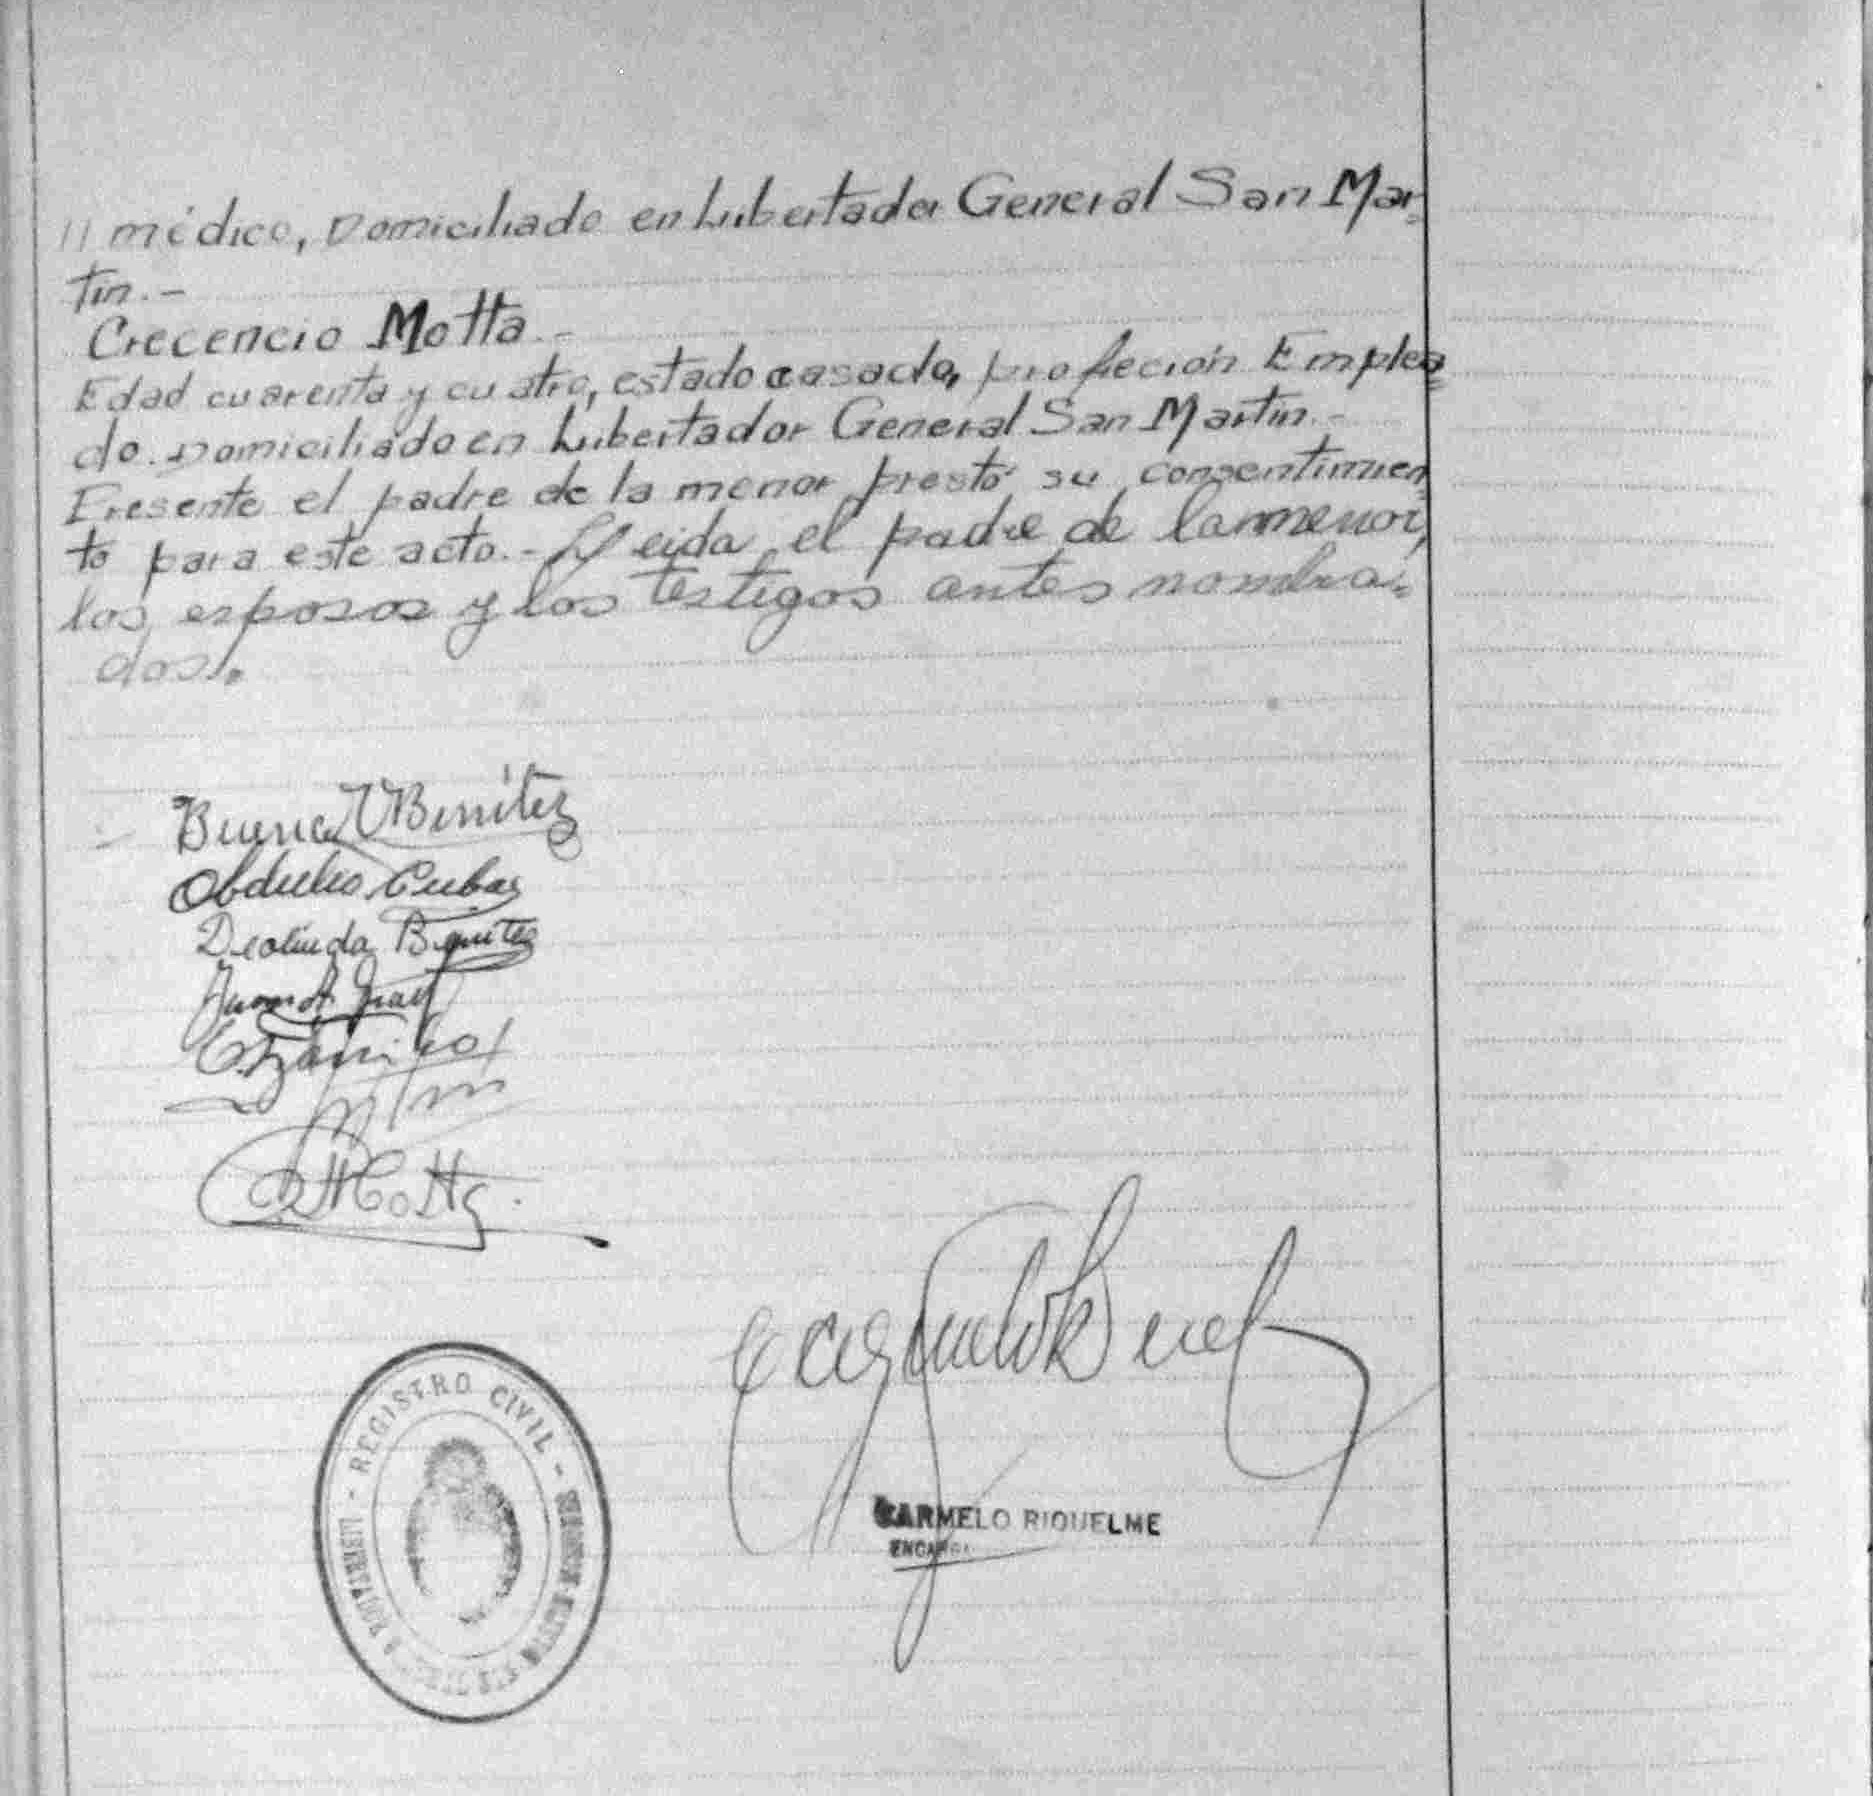 // médico, Domiciliado en Libertador General San Mar-
tin.-
Crecencio Motta.-
Edad cuarenta y cuatro, estado casado, profeción Emplea-
do. Domiciliado en Libertador General San Martin.-
Presente el padre de la menor prestó su consentimien-
to para este acto.- Leida, el padre de la menor,
los esposos y los testigos antes nombra-
dos.
Buena V Benitez
Obdulio Cubas
Deolinda Benitez
Juan A
Motta
CARMELO RIQUELME
ENCARGA
REGISTRO CIVIL